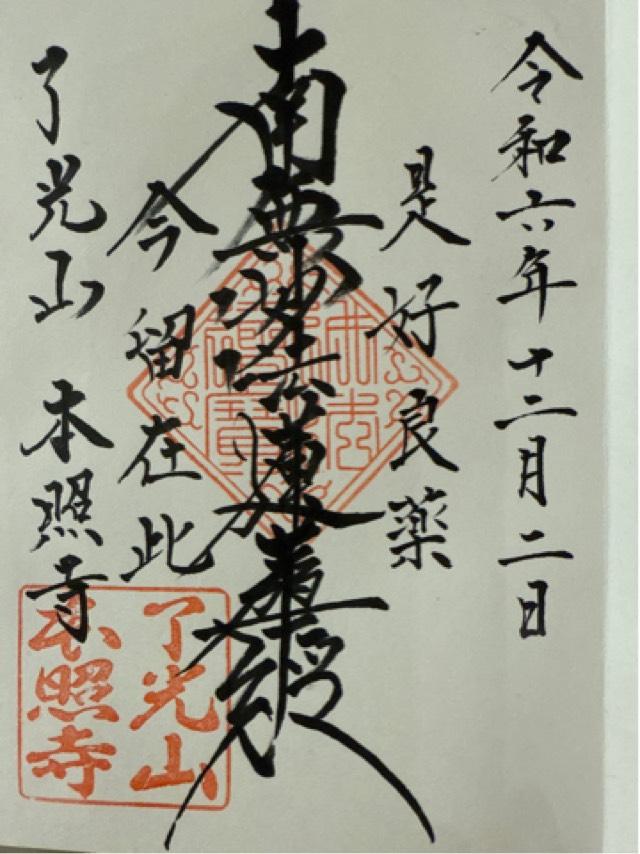 令和六年十二月二日
是好良薬
南無妙法蓮華経
今留在此
了光山 本照寺
了光山
本照寺